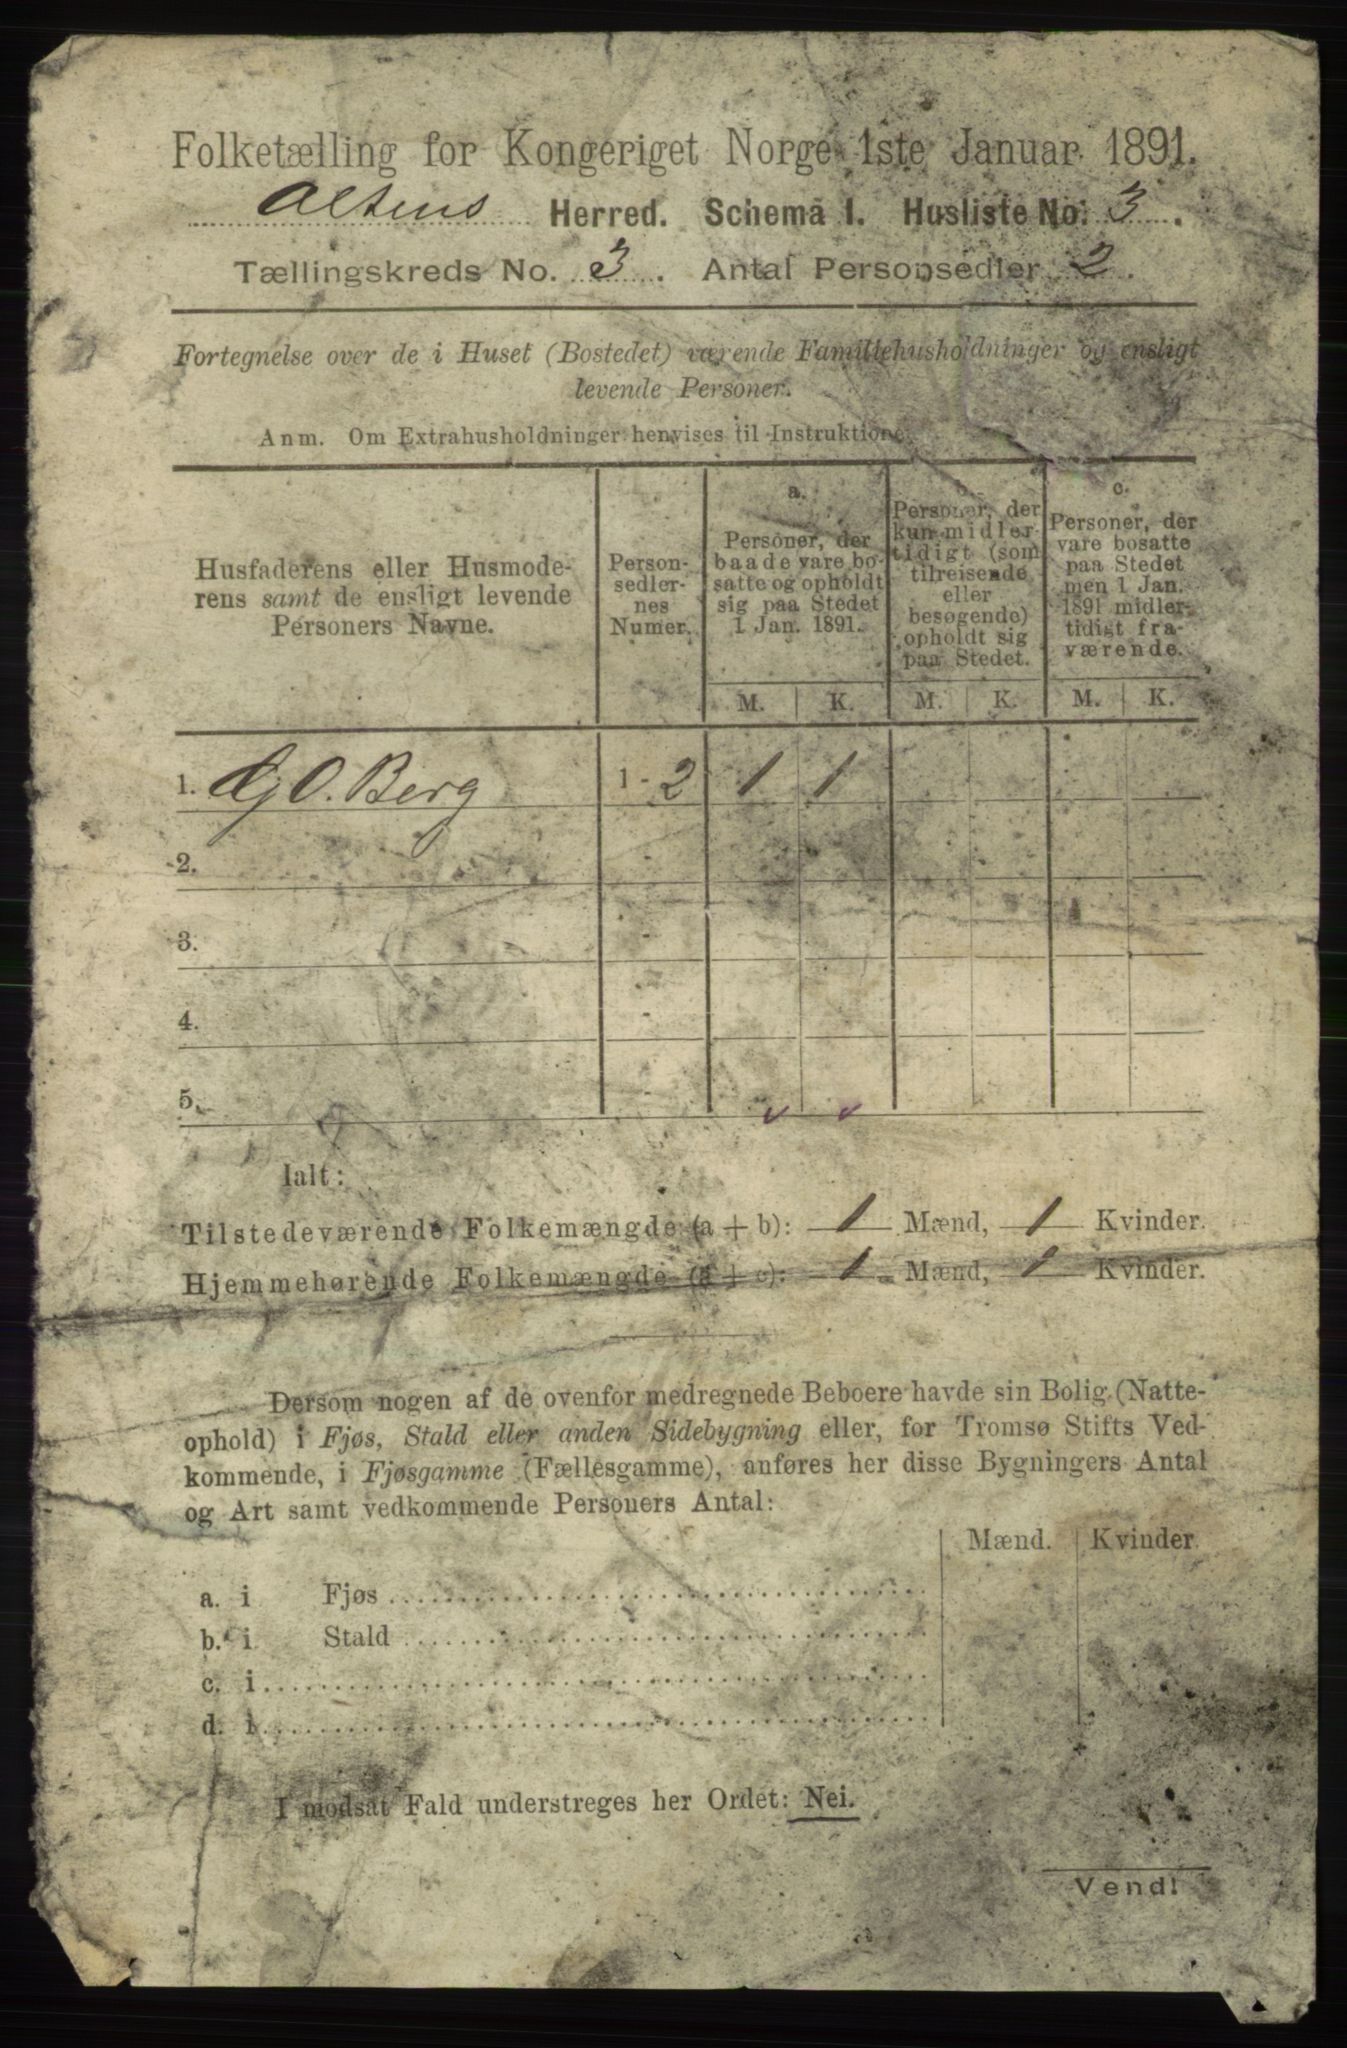 Folketælling for Kongeriget Norge 1ste Januar 1891.
Altens Herred. Schema I. Husliste No. 3.
Tællingskreds No. 3. Antal Personsedler 2.
Fortegnelse over de i Huset (Bostedet) værende Familiehusholdninger og ensligt
levende Personer.
Anm. Om Extrahusholdninger henvises til Instruktionen
Husfaderens eller Husmode-
rens samt de ensligt levende
Personers Navne.
Person-
sedler-
nes
Numer.
a.
Personer, der
baade vare bo-
satte og opholdt
sig paa Stedet
1 Jan. 1891.
Personer, der
kun midler-
tidigt (som
tilreisende
eller
besøgende)
opholdt sig
paa Stedet.
c.
Personer, der
vare bosatte
paa Stedet
men 1 Jan.
1891 midler-
tidigt fra-
værende.
M. K. M. K. M. K.
1. O. Berg 1 - 2 1 1
2. -
3. -
4. -
5. -
Ialt:
Tilstedeværende Folkemængde (a + b): 1 Mænd, 1 Kvinder.
Hjemmehørende Folkemængde (a + c): 1 Mænd, 1 Kvinder.
Dersom nogen af de ovenfor medregnede Beboere havde sin Bolig (Natte-
ophold) i Fjøs, Stald eller anden Sidebygning eller, for Tromsø Stifts Ved-
kommende, i Fjøsgamme (Fællesgamme), anføres her disse Bygningers Antal
og Art samt vedkommende Personers Antal:
Mænd. Kvinder.
a. i Fjøs
b. i Stald
c. i
d. i
I modsat Fald understreges her Ordet: Nei.
Vend!